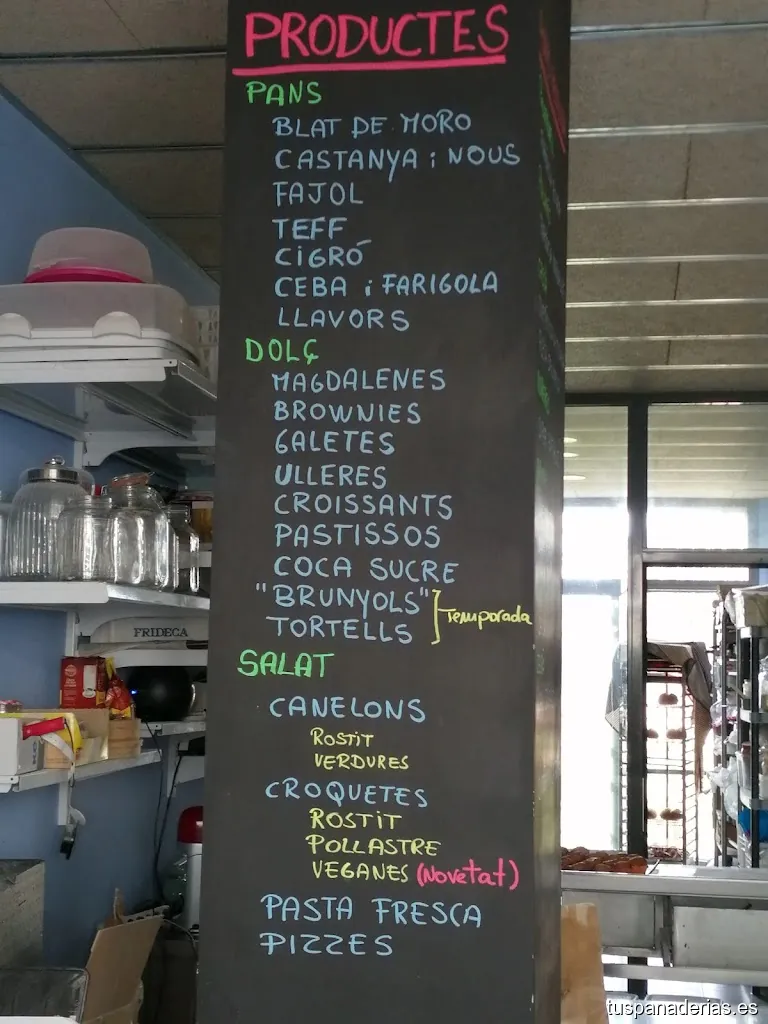 PRODUCTES
PANS
BLAT DE MORO
CASTANYA i NOUS
FAJOL
TEFF
CIGRÓ
CEBA i FARIGOLA
LLAVORS
DOLÇ
MAGDALENES
BROWNIES
GALETES
ULLERES
CROISSANTS
PASTISSOS
COCA SUCRE
"BRUNYOLS"
TORTELLS
Temporada
SALAT
CANELONS
ROSTIT
VERDURES
CROQUETES
ROSTIT
POLLASTRE
VEGANES (Novetat)
PASTA FRESCA
PIZZES
FRIDECA
tuspanaderias.es